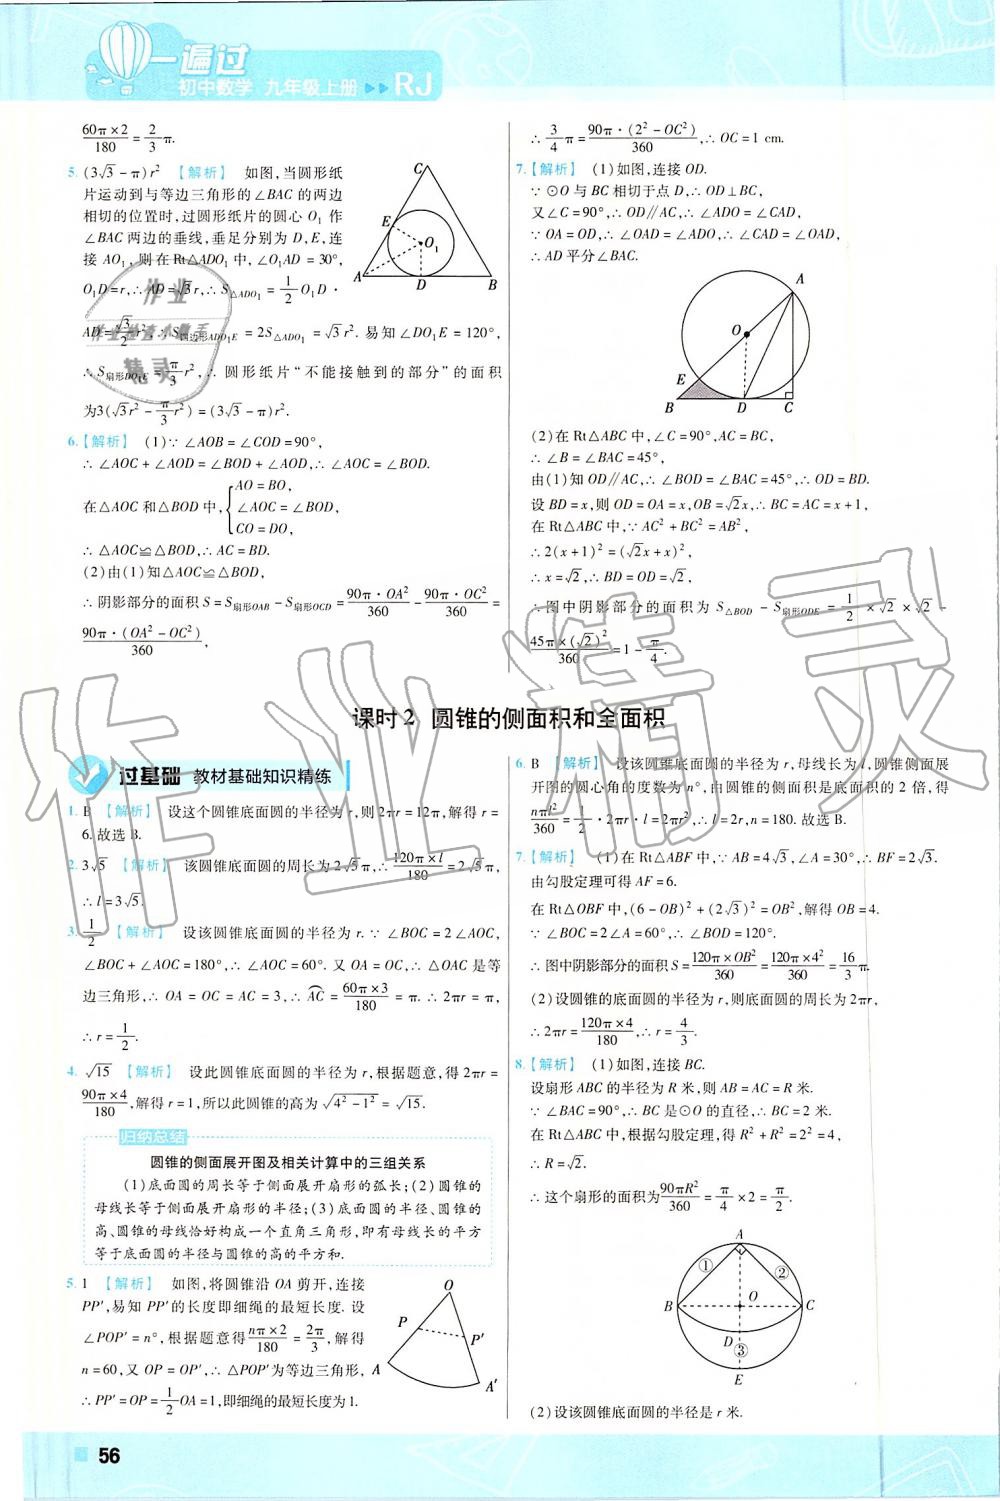 一遍过
初中数学 九年级上册 RJ
60π×2/180=2/3π.
5. (3√3-π)r² 【解析】 如图,当圆形纸
片运动到与等边三角形的∠BAC的两边
相切的位置时,过圆形纸片的圆心O₁作
∠BAC两边的垂线,垂足分别为D,E,连
接AO₁,则在Rt△ADO₁中,∠O₁AD=30°,
O₁D=r,∴AD=√3r,∴S△ADO₁=1/2O₁D·
AD=√3/2r²,∴S四边形ADO₁E=2S△ADO₁=√3r². 易知∠DO₁E=120°,
∴S扇形DO₁E=π/3r²,∴圆形纸片“不能接触到的部分”的面积
为3(√3r²-π/3r²)=(3√3-π)r².
C
E
O₁
A
D
B
6.【解析】 (1)∵∠AOB=∠COD=90°,
∴∠AOC+∠AOD=∠BOD+∠AOD,∴∠AOC=∠BOD.
在△AOC和△BOD中,{AO=BO,
∠AOC=∠BOD,
CO=DO,
∴△AOC≌△BOD,∴AC=BD.
(2)由(1)知△AOC≌△BOD,
∴阴影部分的面积S=S扇形OAB-S扇形OCD=90π·OA²/360-90π·OC²/360=
90π·(OA²-OC²)/360,
∴3/4π=90π·(2²-OC²)/360,∴OC=1 cm.
7.【解析】 (1)如图,连接OD.
∵⊙O与BC相切于点D,∴OD⊥BC,
又∠C=90°,∴OD∥AC,∴∠ADO=∠CAD,
∵OA=OD,∴∠OAD=∠ADO,∴∠CAD=∠OAD,
∴AD平分∠BAC.
A
O
E
B
D
C
(2)在Rt△ABC中,∠C=90°,AC=BC,
∴∠B=∠BAC=45°,
由(1)知OD∥AC,∴∠BOD=∠BAC=45°,∴OD=BD.
设BD=x,则OD=OA=x,OB=√2x,∴BC=AC=x+1,
在Rt△ABC中,∵AC²+BC²=AB²,
∴2(x+1)²=(√2x+x)²,
∴x=√2,∴BD=OD=√2,
∴图中阴影部分的面积为S△BOD-S扇形ODE=1/2×√2×√2-
45π×(√2)²/360=1-π/4.
课时2 圆锥的侧面积和全面积
过基础 教材基础知识精练
1. B 【解析】 设这个圆锥底面圆的半径为r,则2πr=12π,解得r=
6.故选B.
2. 3√5 【解析】 该圆锥底面圆的周长为2√5π,∴120π×l/180=2√5π,
∴l=3√5.
3. 1/2 【解析】 设该圆锥底面圆的半径为r.∵∠BOC=2∠AOC,
∠BOC+∠AOC=180°,∴∠AOC=60°.又OA=OC,∴△OAC是等
边三角形,∴OA=OC=AC=3,∴⌒AC=60π×3/180=π.∴2πr=π,
∴r=1/2.
4. √15 【解析】 设此圆锥底面圆的半径为r,根据题意,得2πr=
90π×4/180,解得r=1,所以此圆锥的高为√(4²-1²)=√15.
归纳总结
圆锥的侧面展开图及相关计算中的三组关系
(1)底面圆的周长等于侧面展开扇形的弧长;(2)圆锥的
母线长等于侧面展开扇形的半径;(3)底面圆的半径、圆锥的
高、圆锥的母线恰好构成一个直角三角形,即有母线长的平方
等于底面圆的半径与圆锥的高的平方和.
5. 1 【解析】 如图,将圆锥沿OA剪开,连接
PP′,易知PP′的长度即细绳的最短长度.设
∠POP′=n°,根据题意得nπ×2/180=2π/3,解得
n=60,又OP=OP′,∴△POP′为等边三角形,
∴PP′=OP=1/2OA=1,即细绳的最短长度为1.
O
P
P′
A
A′
6. B 【解析】 设该圆锥底面圆的半径为r,母线长为l,圆锥侧面展
开图的圆心角的度数为n°,由圆锥的侧面积是底面积的2倍,得
nπl²/360=1/2·2πr·l=2πr²,∴l=2r,n=180.故选B.
7.【解析】 (1)在Rt△ABF中,∵AB=4√3,∠A=30°,∴BF=2√3.
由勾股定理可得AF=6.
在Rt△OBF中,(6-OB)²+(2√3)²=OB²,解得OB=4.
∵∠BOC=2∠A=60°,∴∠BOD=120°.
∴图中阴影部分的面积S=120π×OB²/360=120π×4²/360=16/3π.
(2)设圆锥的底面圆的半径为r,则底面圆的周长为2πr,
∴2πr=120π×4/180,∴r=4/3.
8.【解析】 (1)如图,连接BC.
设扇形ABC的半径为R米,则AB=AC=R米.
∵∠BAC=90°,∴BC是⊙O的直径,∴BC=2米.
在Rt△ABC中,根据勾股定理,得R²+R²=2²=4,
∴R=√2.
∴这个扇形的面积为90πR²/360=π/4×2=π/2.
A
①
②
B
O
C
D
③
E
(2)设该圆锥底面圆的半径是r米.
56
作业精灵
作业检查小帮手